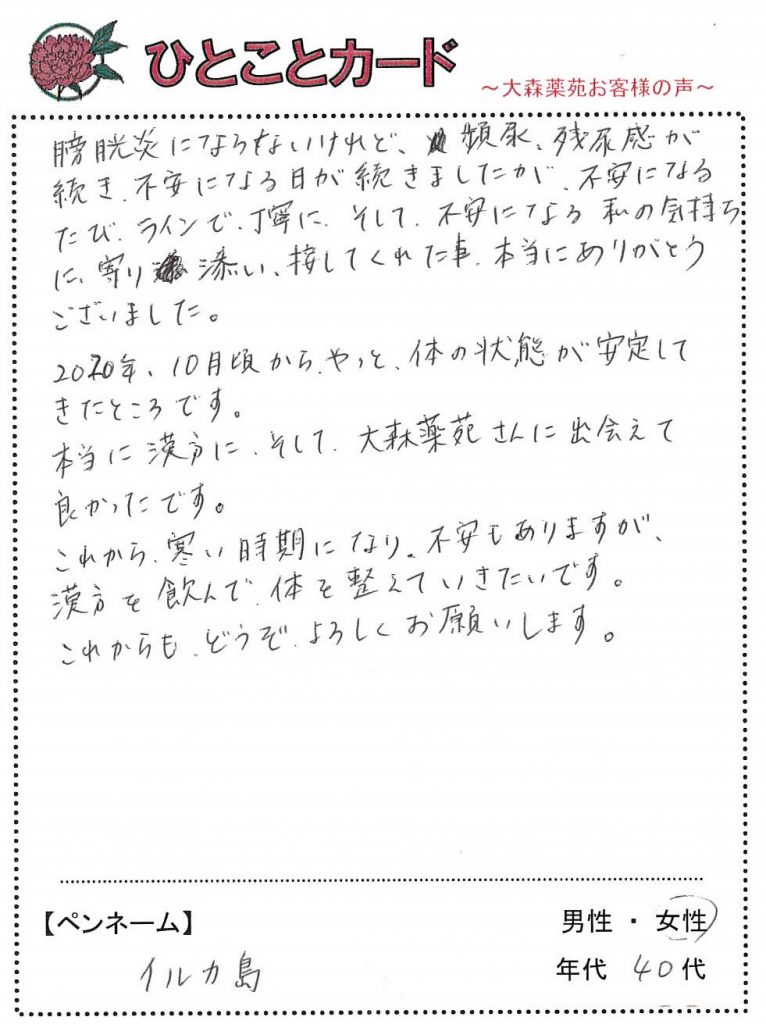 ひとことカード
～大森薬苑お客様の声～
膀胱炎にならないけれど、頻尿、残尿感が
続き、不安になる日が続きましたが、不安になる
たび、ラインで、丁寧に、そして、不安になる私の気持ち
に、寄り添い、接してくれた事、本当にありがとう
ございました。
2020年、10月頃から、やっと、体の状態が安定して
きたところです。
本当に漢方に、そして、大森薬苑さんに出会えて
良かったです。
これから、寒い時期になり。不安もありますが、
漢方を飲んで、体を整えていきたいです。
これからも、どうぞ、よろしくお願いします。
【ペンネーム】
イルカ島
男性 ・ 女性
年代 40代